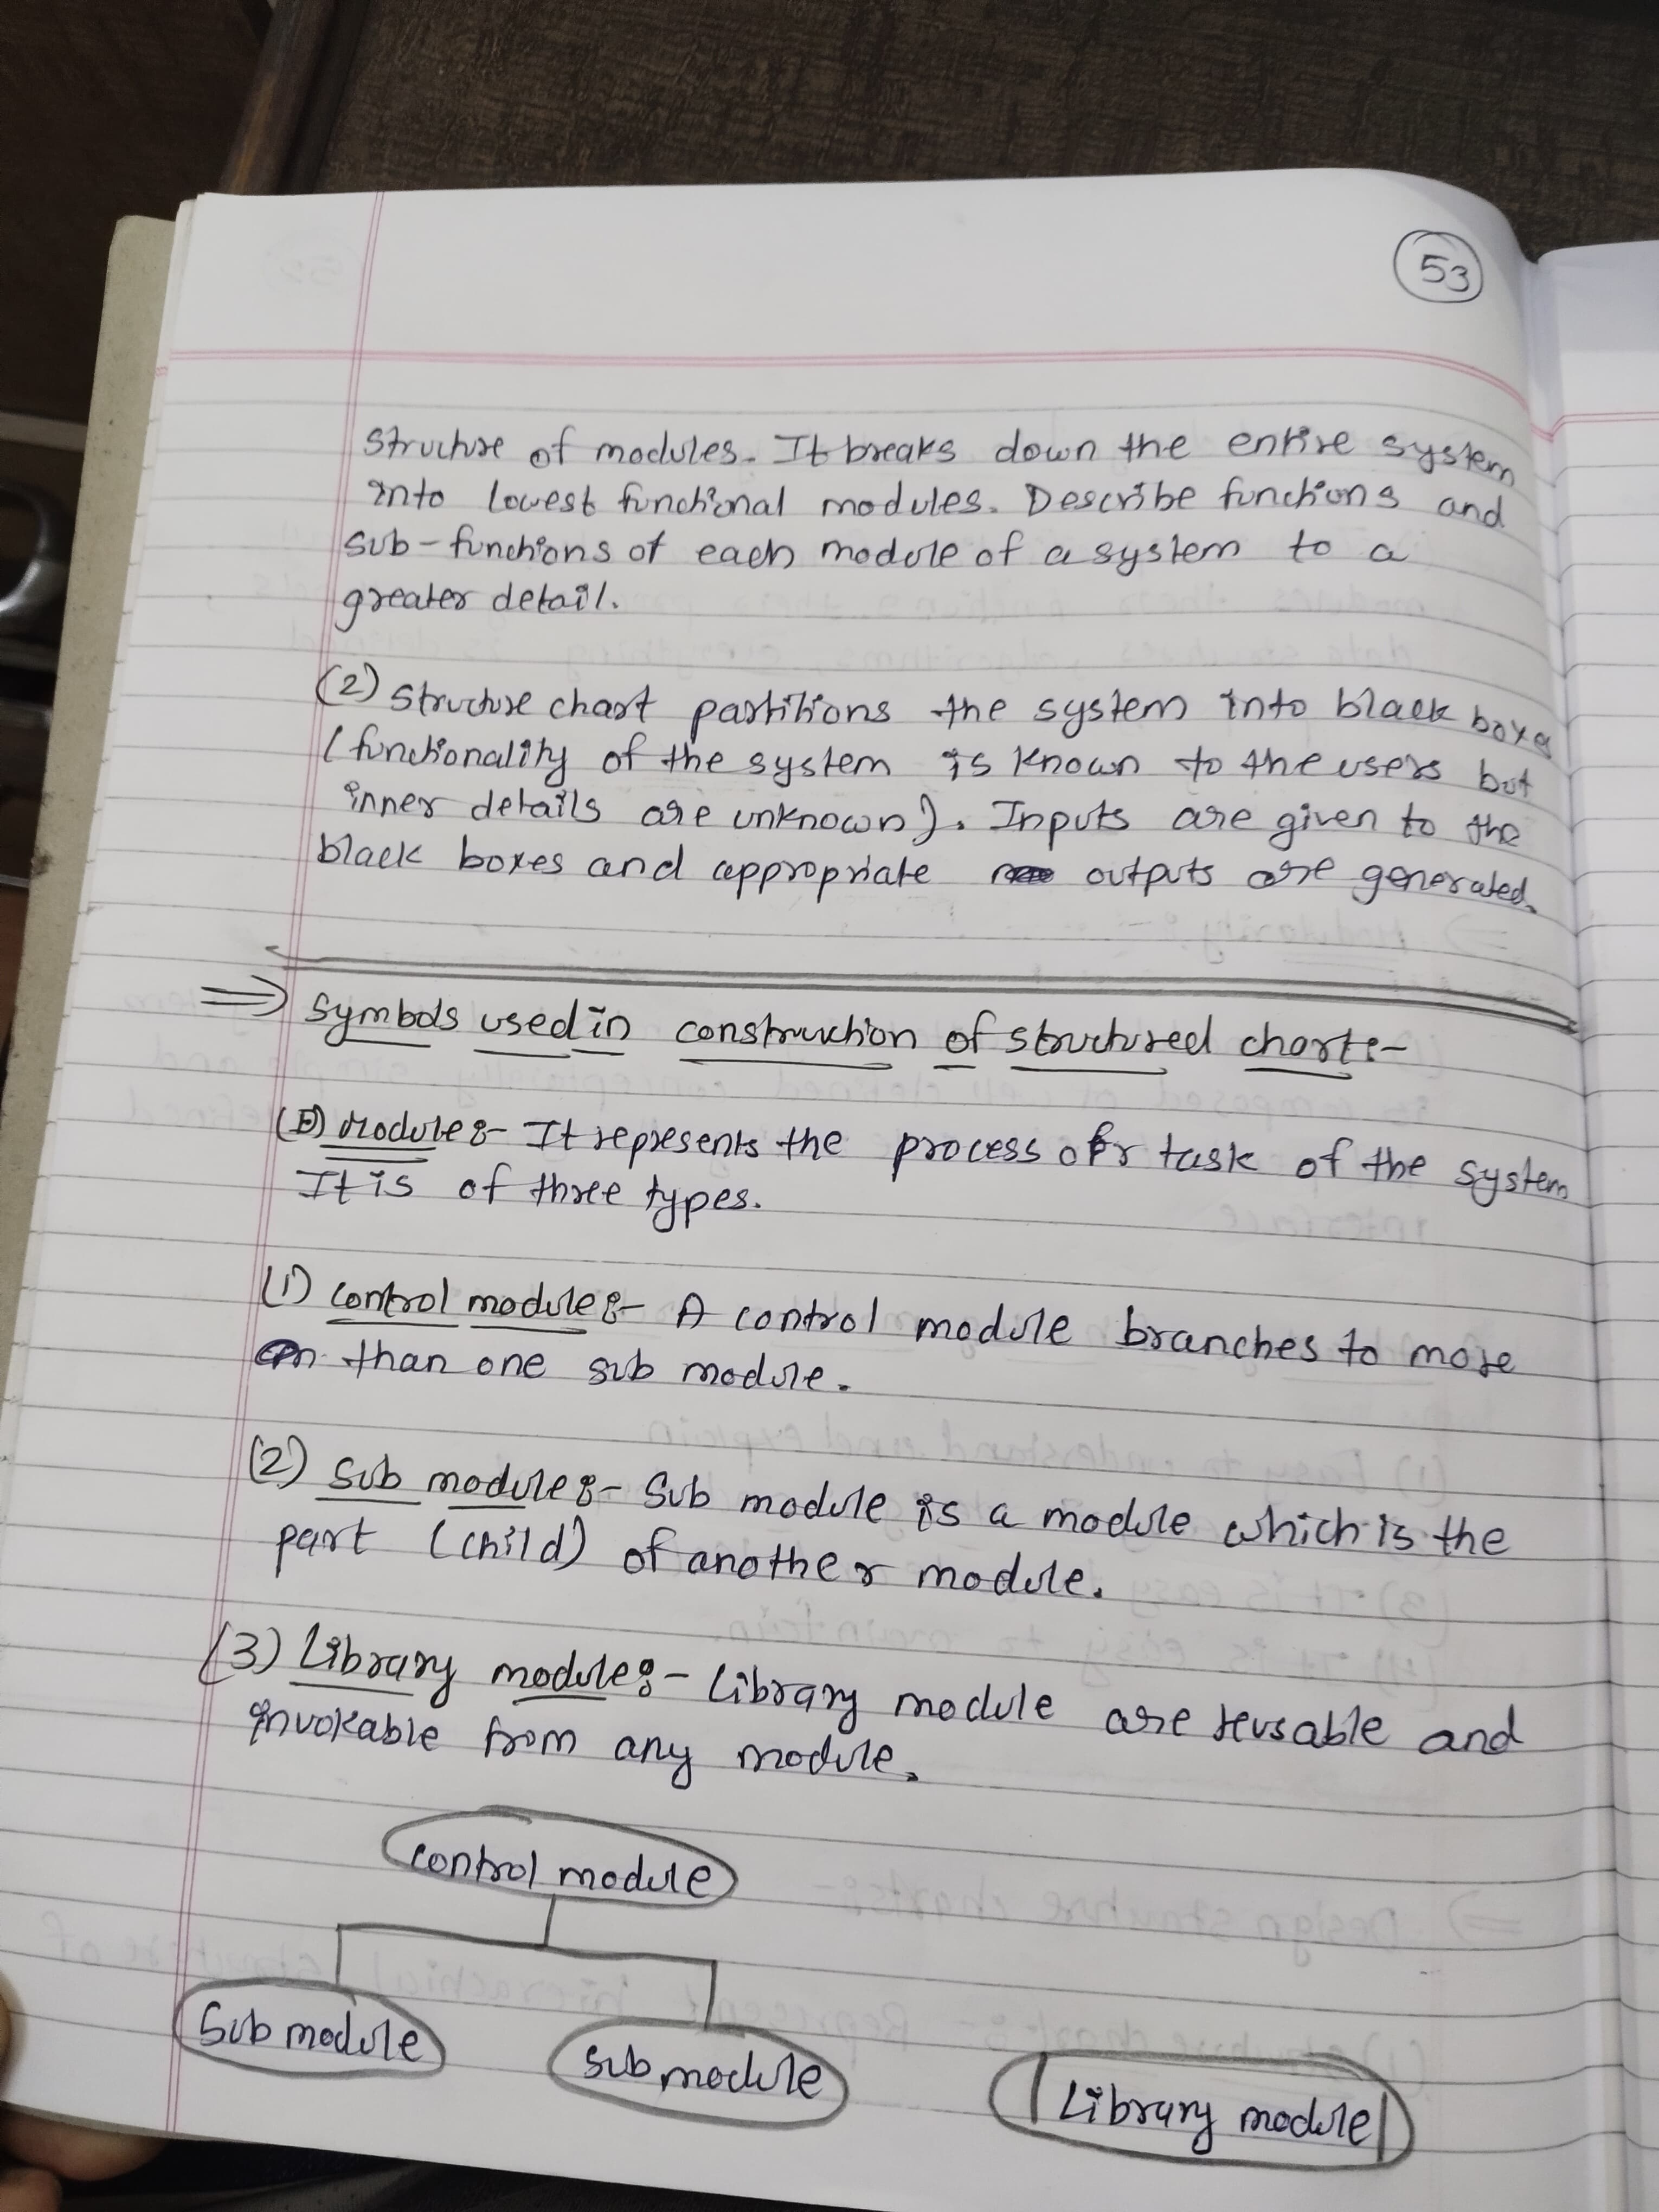 53
structure of modules. It breaks down the entire system
into lowest functional modules. Describe functions and
sub-functions of each module of a system to a
greater detail.
(2) Structure chart partitions the system into black boxes
(functionality of the system is known to the users but
inner details are unknown). Inputs are given to the
black boxes and appropriate outputs are generated.
⇒ Symbols used in construction of structured chart:-
Module:- It represents the process or task of the system
It is of three types.
(1) Control module:- A control module branches to more
than one sub module.
(2) Sub module:- Sub module is a module which is the
part (child) of another module.
(3) Library module:- Library module are reusable and
invokable from any module.
Control module
Sub module
sub module
Library module